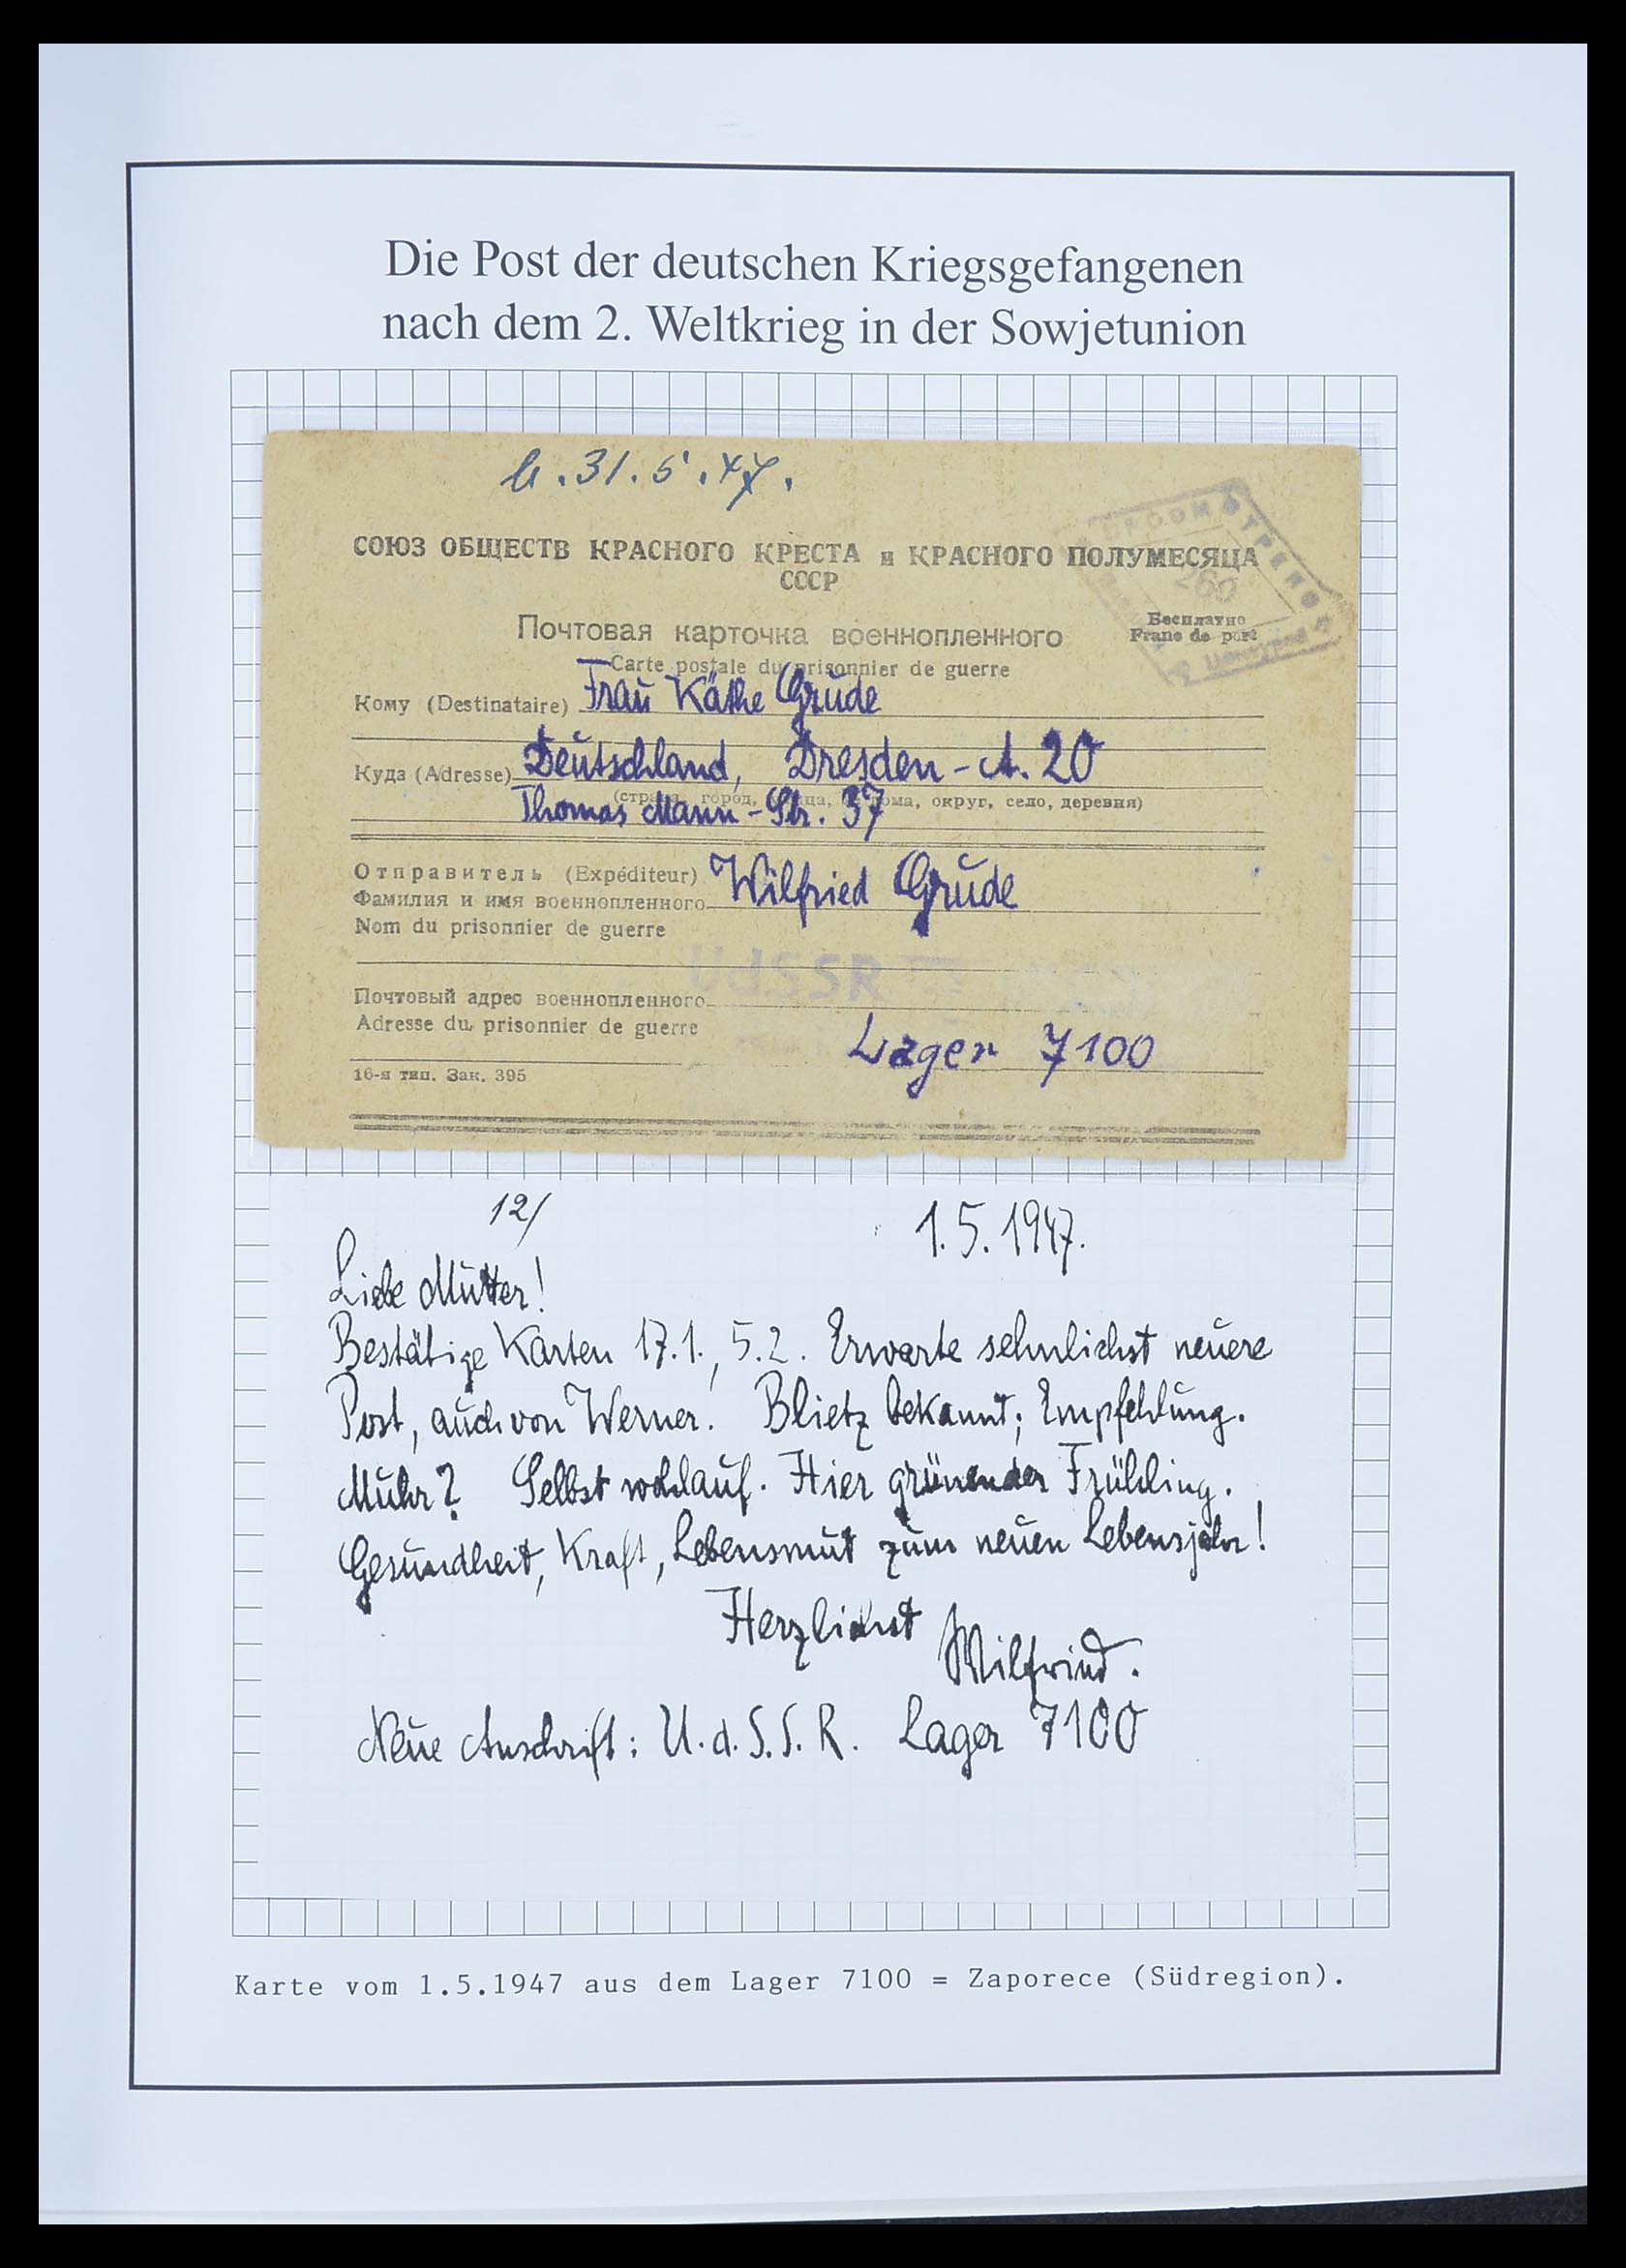 Die Post der deutschen Kriegsgefangenen
nach dem 2. Weltkrieg in der Sowjetunion
b. 31. 5. 47.
СОЮЗ ОБЩЕСТВ КРАСНОГО КРЕСТА и КРАСНОГО ПОЛУМЕСЯЦА
СССР
269
Почтовая карточка военнопленного
Бесплатно
Franc de port
Carte postale du prisonnier de guerre
Кому (Destinataire) Frau Käthe Grude
Куда (Adresse) Deutschland, Dresden-A. 20
(страна, город, улица, № дома, округ, село, деревня)
Thomas Mann-Str. 37
Отправитель (Expéditeur) Wilfried Grude
Фамилия и имя военнопленного
Nom du prisonnier de guerre
UdSSR
Почтовый адрес военнопленного
Adresse du prisonnier de guerre
Lager 7100
16-я тип. Зак. 395
12/ 1.5.1947.
Liebe Mutter!
Bestätige Karten 17.1., 5.2. Erwarte sehnlichst neuere
Post, auch von Werner. Blietz bekannt; Empfehlung.
Muhr? Selbst wohlauf. Hier grünender Frühling.
Gesundheit, Kraft, Lebensmut zum neuen Lebensjahr!
Herzlichst
Wilfried.
Neue Anschrift: U.d.S.S.R. Lager 7100
Karte vom 1.5.1947 aus dem Lager 7100 = Zaporece (Südregion).